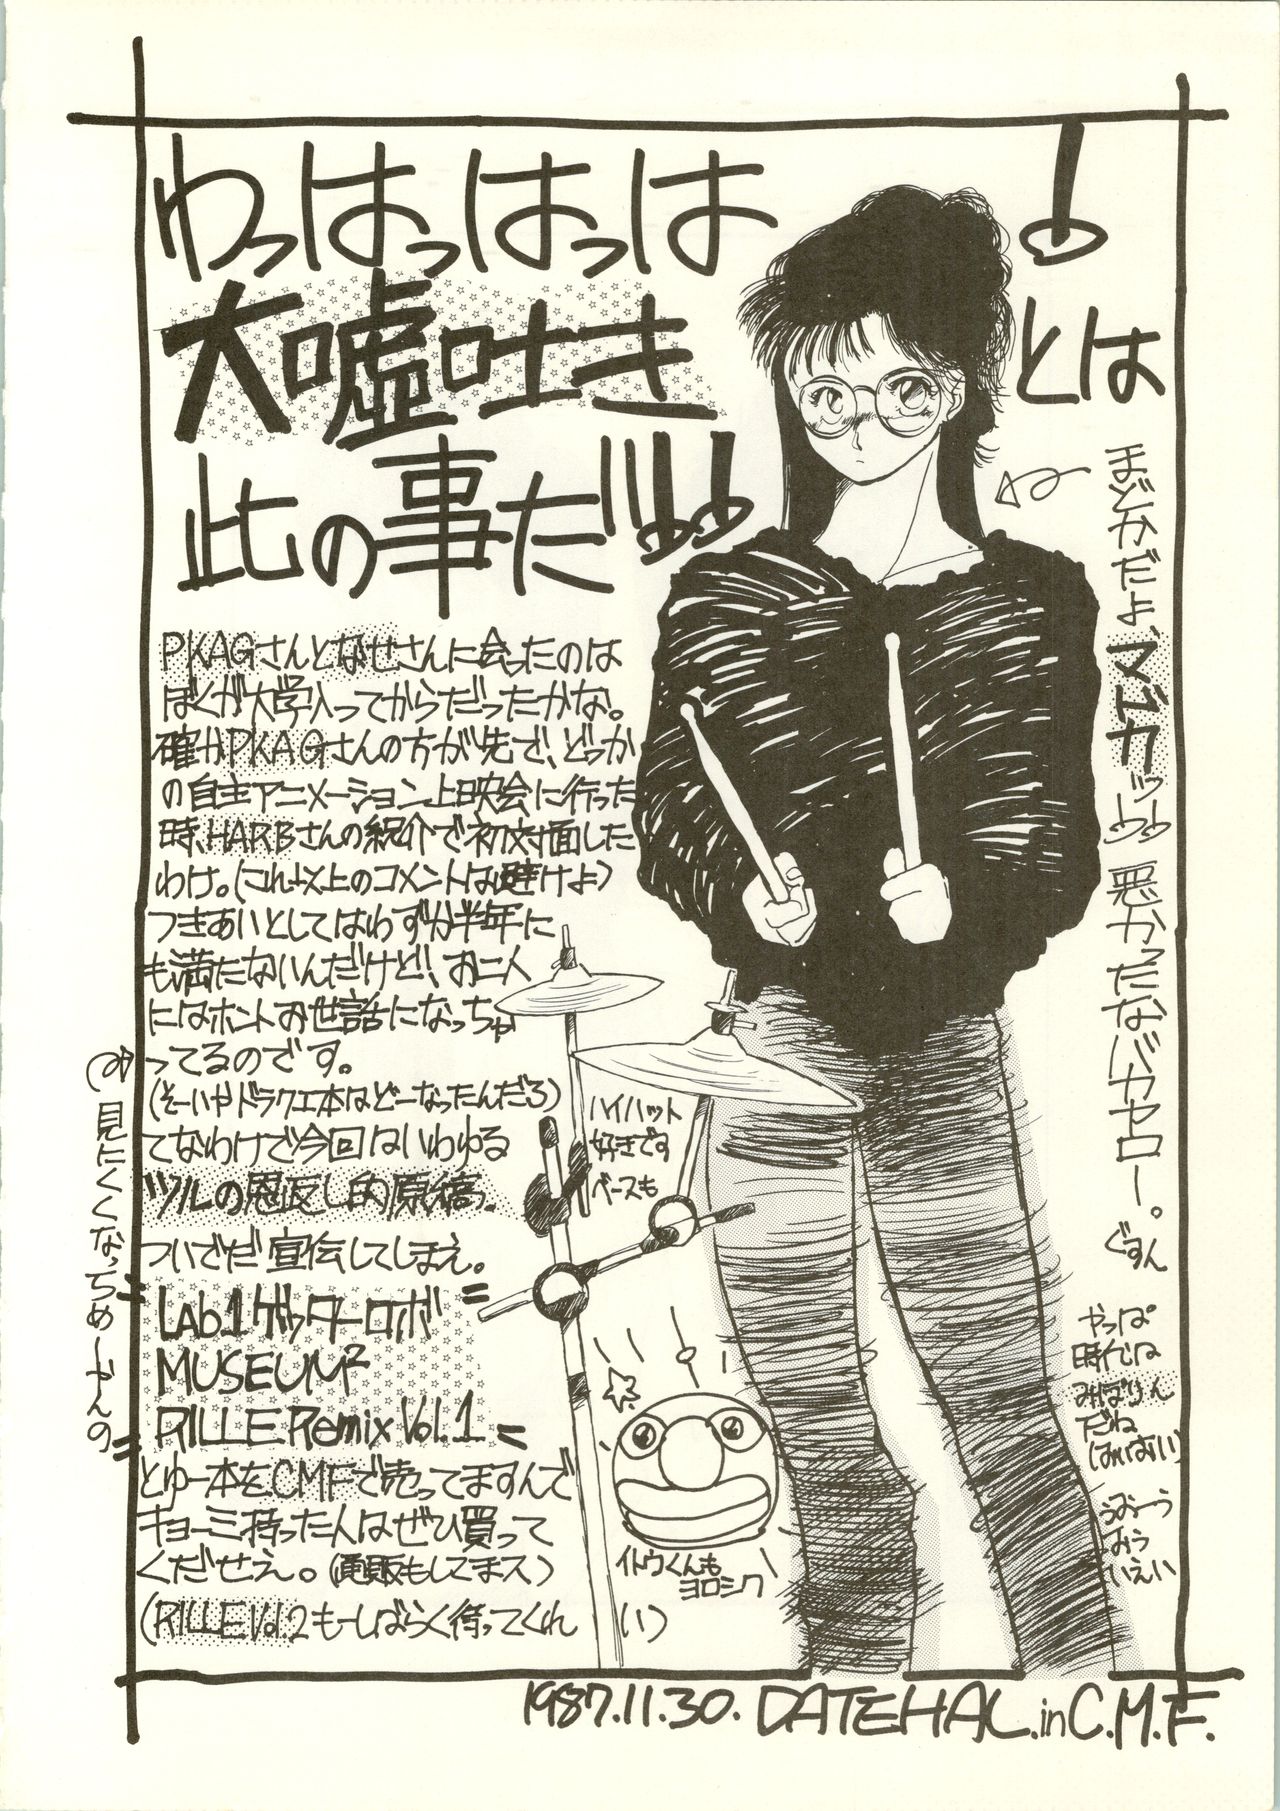 わっはっはっは!
大嘘吐き
とは
此の事だ!!!
PKAGさんとなせさんに会ったのは
ぼくが大学入ってからだったかな。
確かPKAGさんの方が先で、どっか
の自主アニメーション上映会に行った
時、HARBさんの紹介で初対面した
わけ。(これ以上のコメントは避けよ)
つきあいとしてはわずか半年に
も満たないんだけど、お二人
にはホントお世話になっちゃ
ってるのです。
(そーいやドラクエ本はどーなったんだろ)
てなわけで今回はいわゆる
ツルの恩返し的原稿。
ついでだ宣伝してしまえ。
=Lab.1ゲッターロボ=
MUSEUM²
=RILLE Remix Vol.1=
とゆー本をCMFで売ってますんで
キョーミ持った人はぜひ買って
くだせえ。(通販もしてまス)
(RILLE Vol.2もーしばらく待ってくれい)
見にくくなっちめーやんの
まどかだよ、マドカッ!! 悪かったなバカヤロー。ぐすん
ハイハット
好きです
ベースも
やっぱ
時代は
みぽりん
だね
(はいはい)
うおーう
みう
いえい
イトウくんも
ヨロシク
1987.11.30. DATEHAL.in C.M.F.